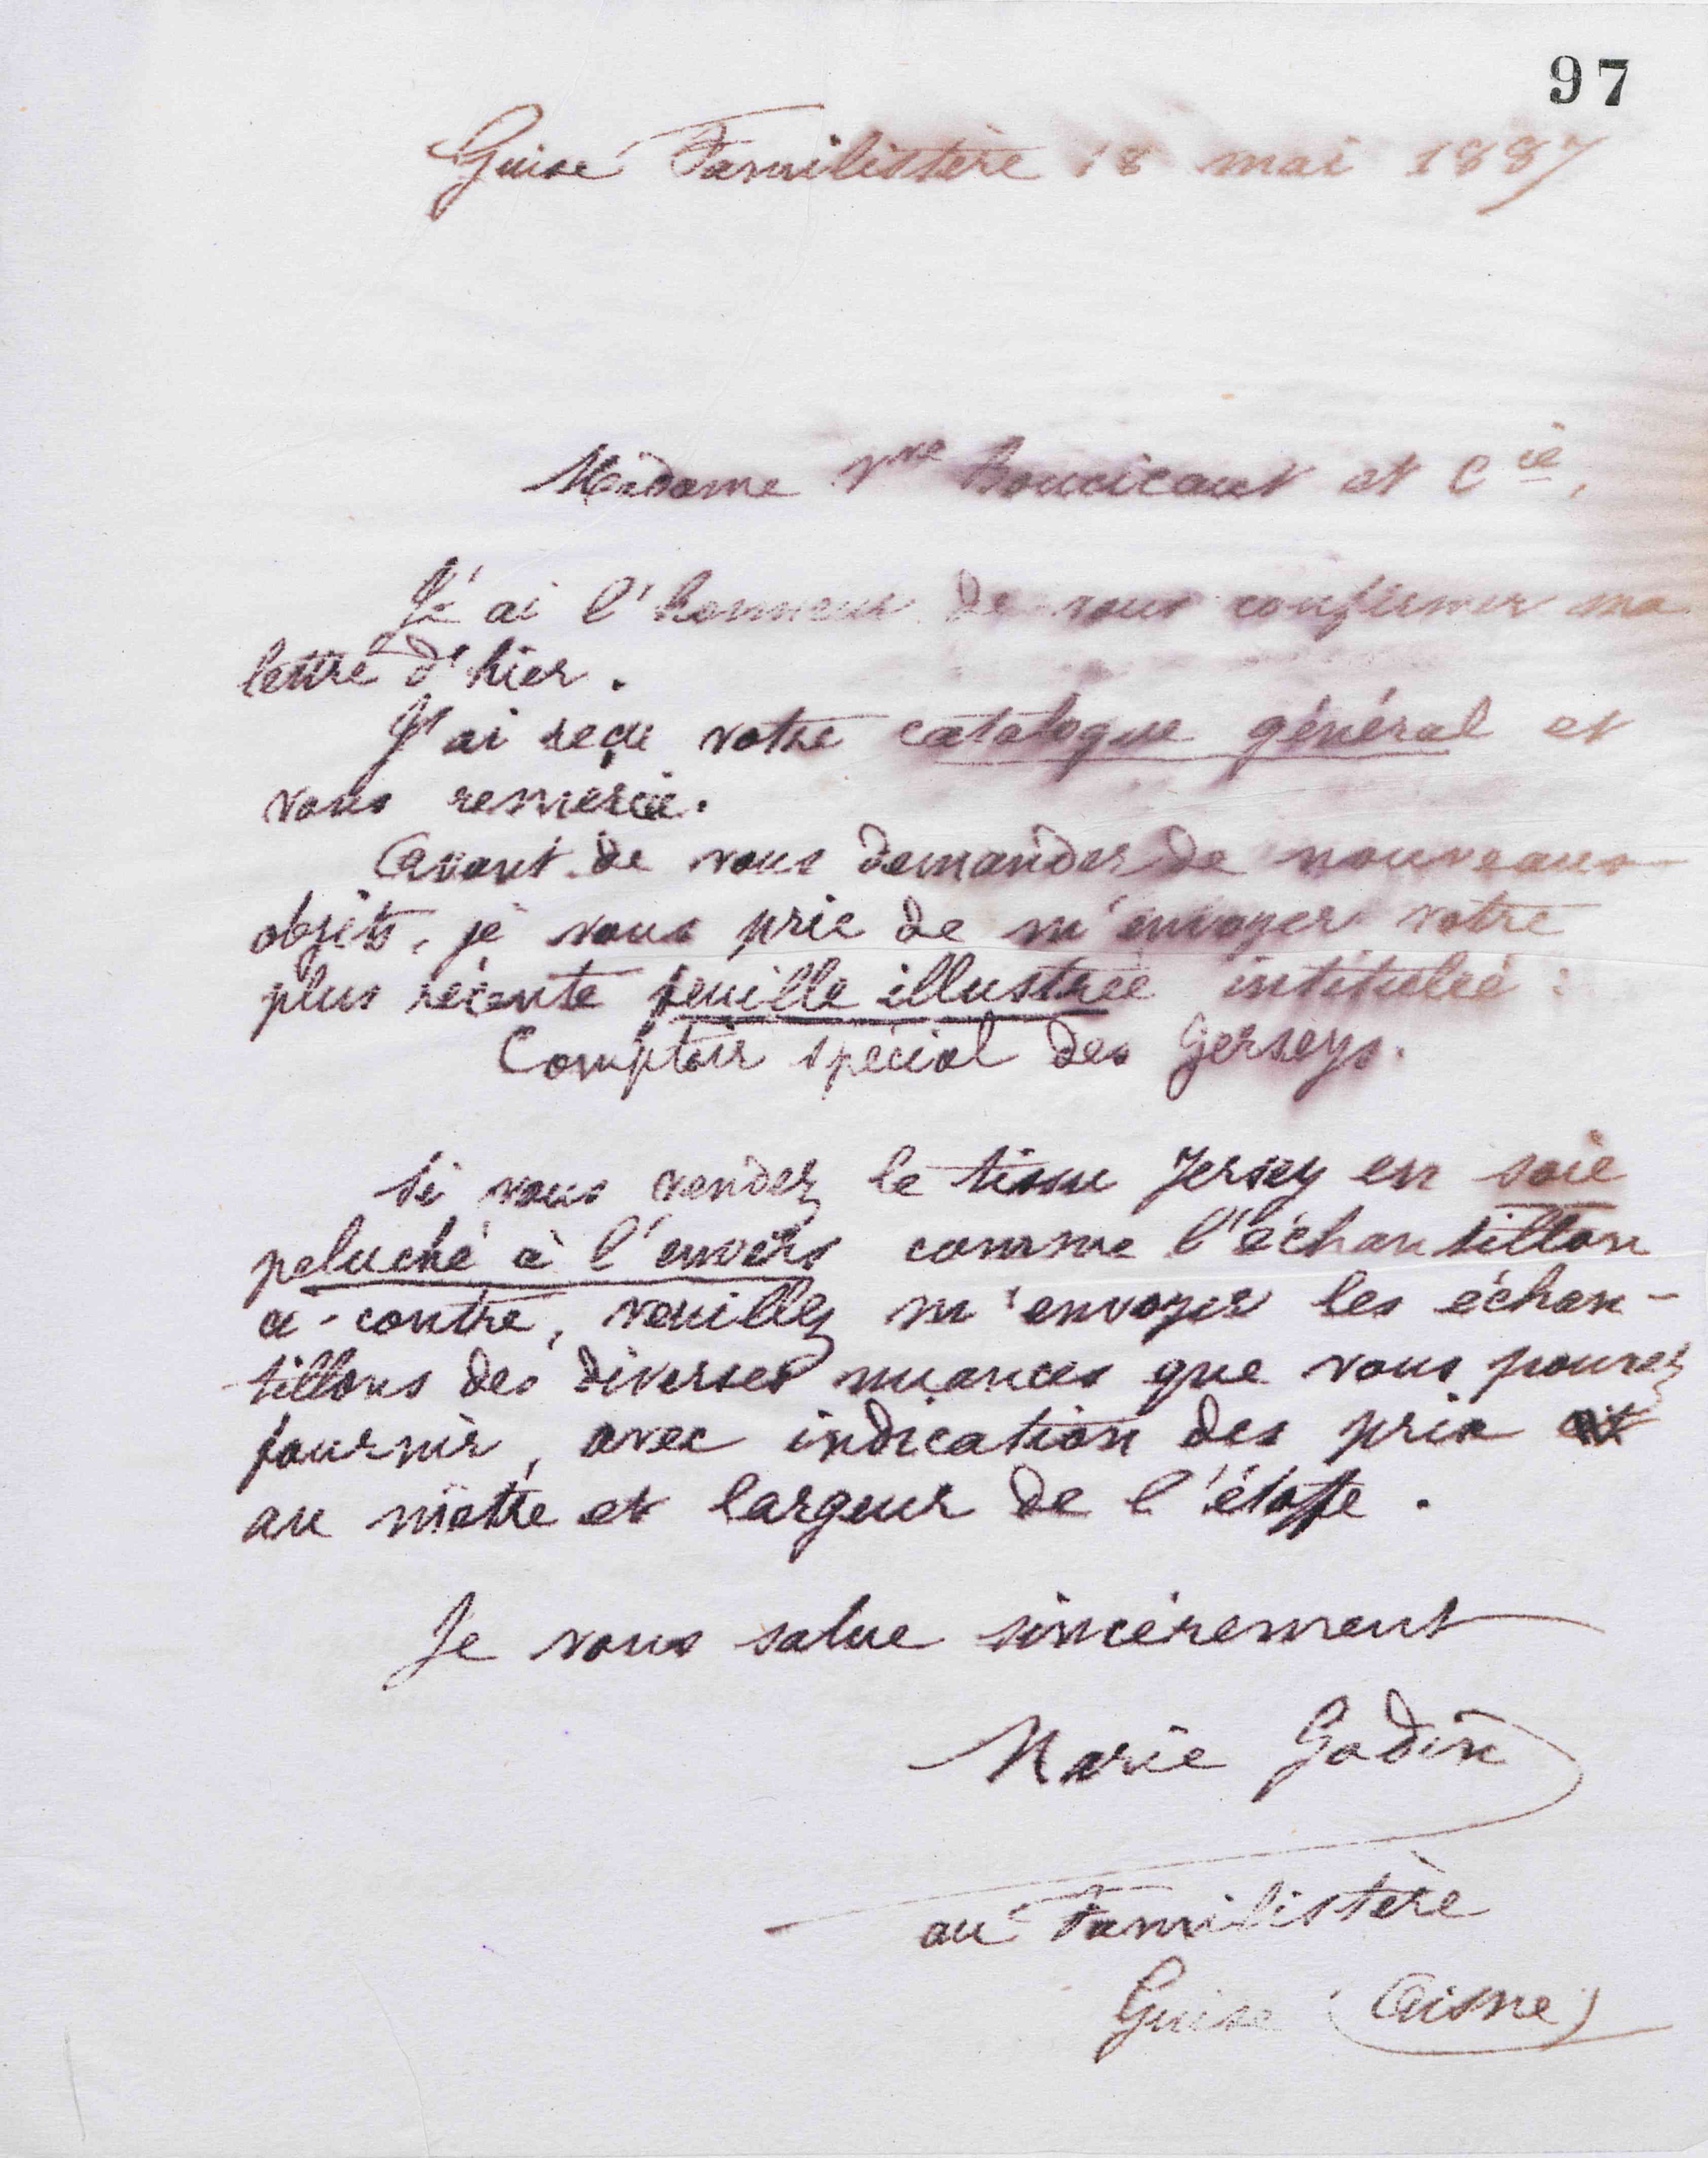 97
Guise Familistère 18 mai 1887
Madame Vve Boucicaut et Cie,
J'ai l'honneur de vous confirmer ma
lettre d'hier.
J'ai reçu votre catalogue général et
vous remercie.
Avant de vous demander de nouveaux
objets, je vous prie de m'envoyer votre
plus récente feuille illustrée intitulée :
Comptoir spécial des Jerseys.
Si vous vendez le tissu Jersey en soie
peluché à l'envers comme l'échantillon
ci-contre, veuillez m'envoyer les échan-
tillons des diverses nuances que vous pouvez
fournir, avec indication des prix
au mètre et largeur de l'étoffe.
Je vous salue sincèrement
Marie Godin
au Familistère
Guise (Aisne)